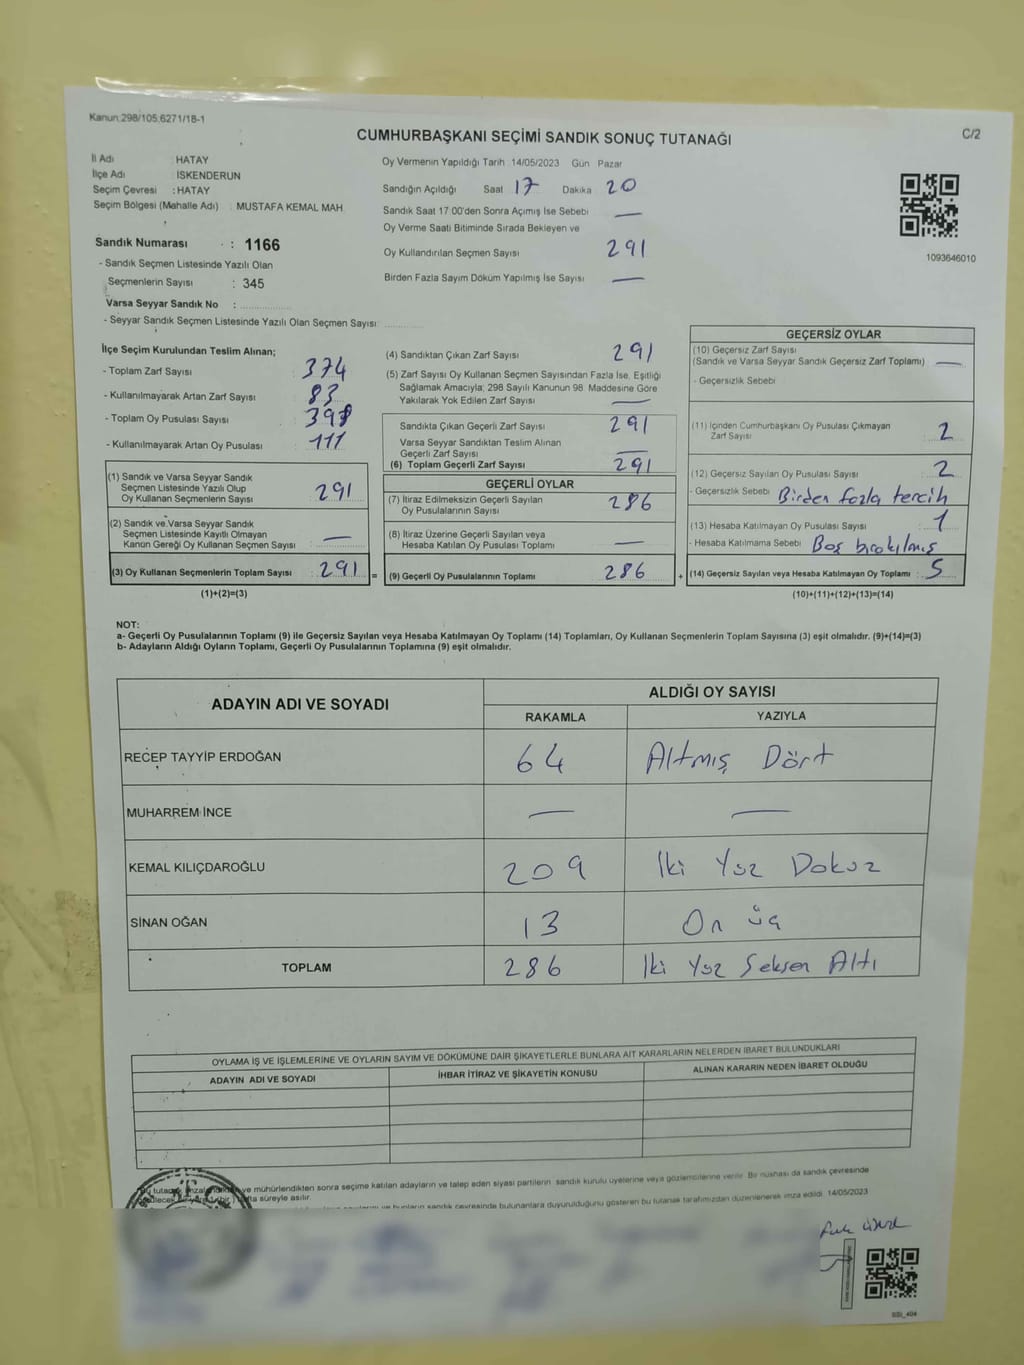 Kanun:298/105;6271/18-1
C/2
CUMHURBAŞKANI SEÇİMİ SANDIK SONUÇ TUTANAĞI
İl Adı : HATAY
İlçe Adı : İSKENDERUN
Seçim Çevresi : HATAY
Seçim Bölgesi (Mahalle Adı) : MUSTAFA KEMAL MAH
Sandık Numarası : 1166
- Sandık Seçmen Listesinde Yazılı Olan
Seçmenlerin Sayısı : 345
Varsa Seyyar Sandık No :
- Seyyar Sandık Seçmen Listesinde Yazılı Olan Seçmen Sayısı:
Oy Vermenin Yapıldığı Tarih 14/05/2023 Gün Pazar
Sandığın Açıldığı Saat 17 Dakika 20
Sandık Saat 17:00'den Sonra Açımış İse Sebebi —
Oy Verme Saati Bitiminde Sırada Bekleyen ve
Oy Kullandırılan Seçmen Sayısı 291
Birden Fazla Sayım Döküm Yapılmış İse Sayısı —
1093646010
İlçe Seçim Kurulundan Teslim Alınan;
- Toplam Zarf Sayısı 374
- Kullanılmayarak Artan Zarf Sayısı 83
- Toplam Oy Pusulası Sayısı 398
- Kullanılmayarak Artan Oy Pusulası 111
(1) Sandık ve Varsa Seyyar Sandık
Seçmen Listesinde Yazılı Olup
Oy Kullanan Seçmenlerin Sayısı 291
(2) Sandık ve Varsa Seyyar Sandık
Seçmen Listesinde Kayıtlı Olmayan
Kanun Gereği Oy Kullanan Seçmen Sayısı —
(3) Oy Kullanan Seçmenlerin Toplam Sayısı 291 =
(1)+(2)=(3)
(4) Sandıktan Çıkan Zarf Sayısı 291
(5) Zarf Sayısı Oy Kullanan Seçmen Sayısından Fazla İse, Eşitliği
Sağlamak Amacıyla; 298 Sayılı Kanunun 98. Maddesine Göre
Yakılarak Yok Edilen Zarf Sayısı —
Sandıkta Çıkan Geçerli Zarf Sayısı 291
Varsa Seyyar Sandıktan Teslim Alınan
Geçerli Zarf Sayısı —
(6) Toplam Geçerli Zarf Sayısı 291
GEÇERLİ OYLAR
(7) İtiraz Edilmeksizin Geçerli Sayılan
Oy Pusulalarının Sayısı 286
(8) İtiraz Üzerine Geçerli Sayılan veya
Hesaba Katılan Oy Pusulası Toplamı —
(9) Geçerli Oy Pusulalarının Toplamı 286 +
GEÇERSİZ OYLAR
(10) Geçersiz Zarf Sayısı
(Sandık ve Varsa Seyyar Sandık Geçersiz Zarf Toplamı) —
- Geçersizlik Sebebi
(11) İçinden Cumhurbaşkanı Oy Pusulası Çıkmayan
Zarf Sayısı 2
(12) Geçersiz Sayılan Oy Pusulası Sayısı 2
- Geçersizlik Sebebi Birden fazla tercih
(13) Hesaba Katılmayan Oy Pusulası Sayısı 1
- Hesaba Katılmama Sebebi Boş bırakılmış
(14) Geçersiz Sayılan veya Hesaba Katılmayan Oy Toplamı : 5
(10)+(11)+(12)+(13)=(14)
NOT:
a- Geçerli Oy Pusulalarının Toplamı (9) ile Geçersiz Sayılan veya Hesaba Katılmayan Oy Toplamı (14) Toplamları, Oy Kullanan Seçmenlerin Toplam Sayısına (3) eşit olmalıdır. (9)+(14)=(3)
b- Adayların Aldığı Oyların Toplamı, Geçerli Oy Pusulalarının Toplamına (9) eşit olmalıdır.
ADAYIN ADI VE SOYADI
ALDIĞI OY SAYISI
RAKAMLA YAZIYLA
RECEP TAYYİP ERDOĞAN 64 Altmış Dört
MUHARREM İNCE — —
KEMAL KILIÇDAROĞLU 209 İki Yüz Dokuz
SİNAN OĞAN 13 On üç
TOPLAM 286 İki Yüz Seksen Altı
OYLAMA İŞ VE İŞLEMLERİNE VE OYLARIN SAYIM VE DÖKÜMÜNE DAİR ŞİKAYETLERLE BUNLARA AİT KARARLARIN NELERDEN İBARET BULUNDUKLARI
ADAYIN ADI VE SOYADI İHBAR İTİRAZ VE ŞİKAYETİN KONUSU ALINAN KARARIN NEDEN İBARET OLDUĞU
ve mühürlendikten sonra seçime katılan adayların ve talep eden siyasi partilerin sandık kurulu üyelerine veya gözlemcilerine verilir. Bir nüshası da sandık çevresinde
süreyle asılır.
ve bunların sandık çevresinde bulunanlara duyurulduğunu gösteren bu tutanak tarafımızdan düzenlenerek imza edildi. 14/05/2023